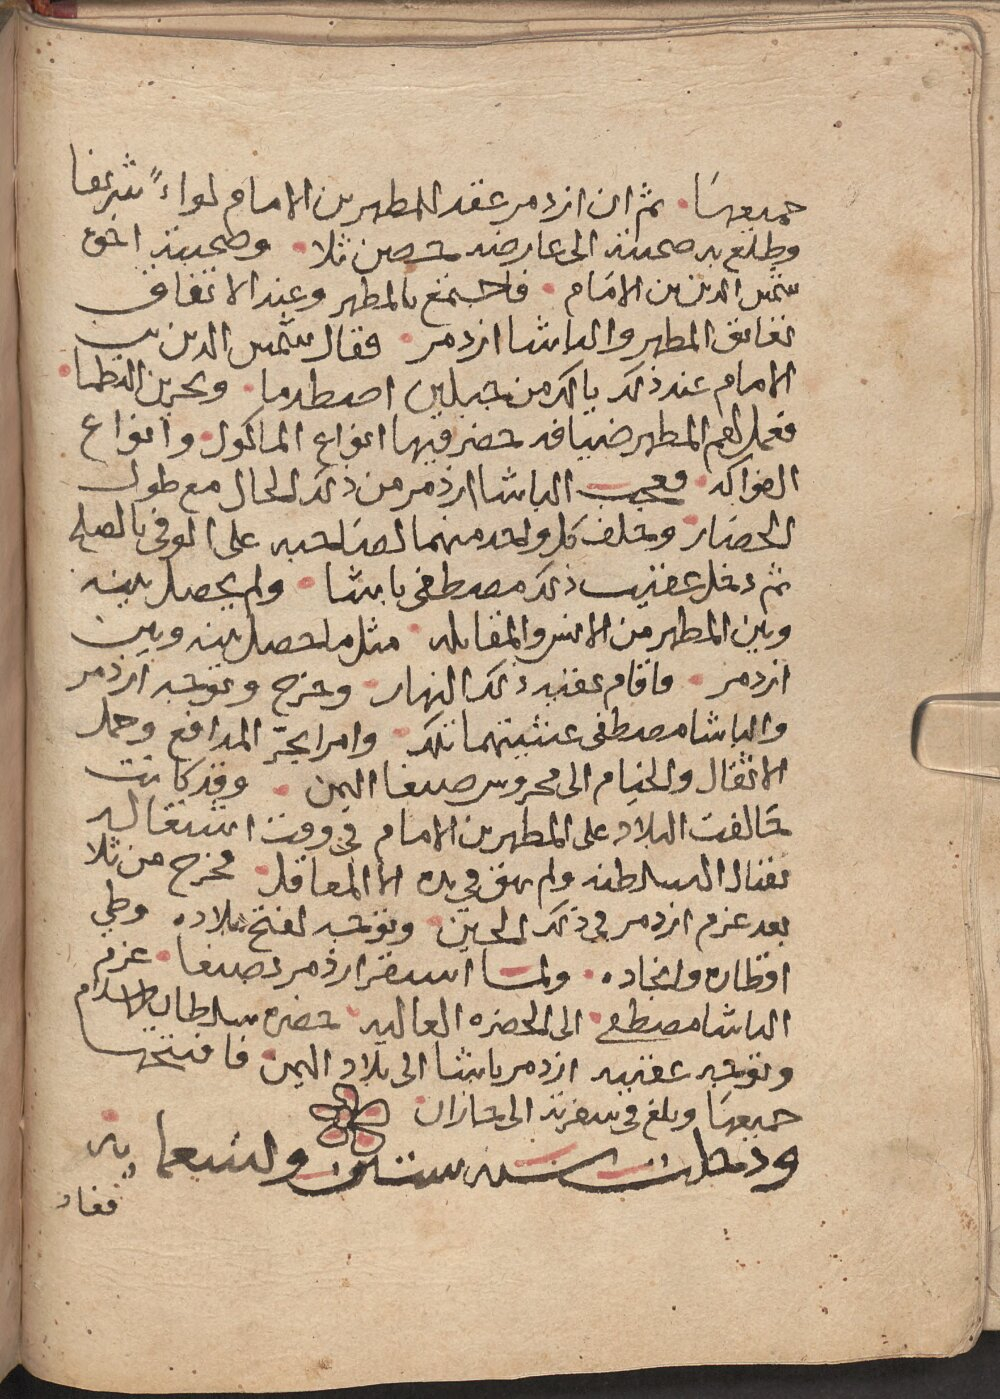 جميعها . ثم ان ازدمر عقد للمطهر بن الامام لواءً شريفا
وطلع به صحبته الى عارضه حصن ثلا . وصحبته اخوه
شمس الدين بن الامام . فاجتمع بالمطهر وعند الاتفاق
تعانق المطهر والباشا ازدمر . فقال شمس الدين بن
الامام عند ذلك يا لك من جبلين اصطدما . وبحرين التطما .
فعمل لهم المطهر ضيافه حضر فيها انواع الماكول . وانواع
الفواكه . فعجب الباشا ازدمر من ذلك الحال مع طول
الحصار . وحلف كل واحد منهما لصاحبه على الوفى بالصلح
ثم دخل عقيب ذلك مصطفى باشا . ولم يحصل بينه
وبين المطهر من الانس والمقابله . مثل ما حصل بينه وبين
ازدمر . فاقام عقبه ذلك النهار . وخرج وتوجه ازدمر
والباشا مصطفى عشيتهما تلك . وامرا بجرّ المدافع وحمل
الاثقال والخيام الى محروس صنعا اليمن . وقد كانت
خالفت البلاد على المطهر بن الامام في وقت اشتغاله
بقتال السلطنه ولم يبق في يده الا المعاقل . فخرج من ثلا
بعد عزم ازدمر في ذلك الحين . وتوجه لفتح بلاده . وطي
اقطاره وانجاده . ولما استقر ازدمر بصنعا . عزم
الباشا مصطفى . الى الحضره العاليه . حضره سلطان الاسلام
وتوجه عقبه ازدمر باشا الى بلاد اليمن فافتتحها
جميعها وبلغ في سفرته الى جازان .
ودخلت سنه ستين وتسعمايه
فعاد